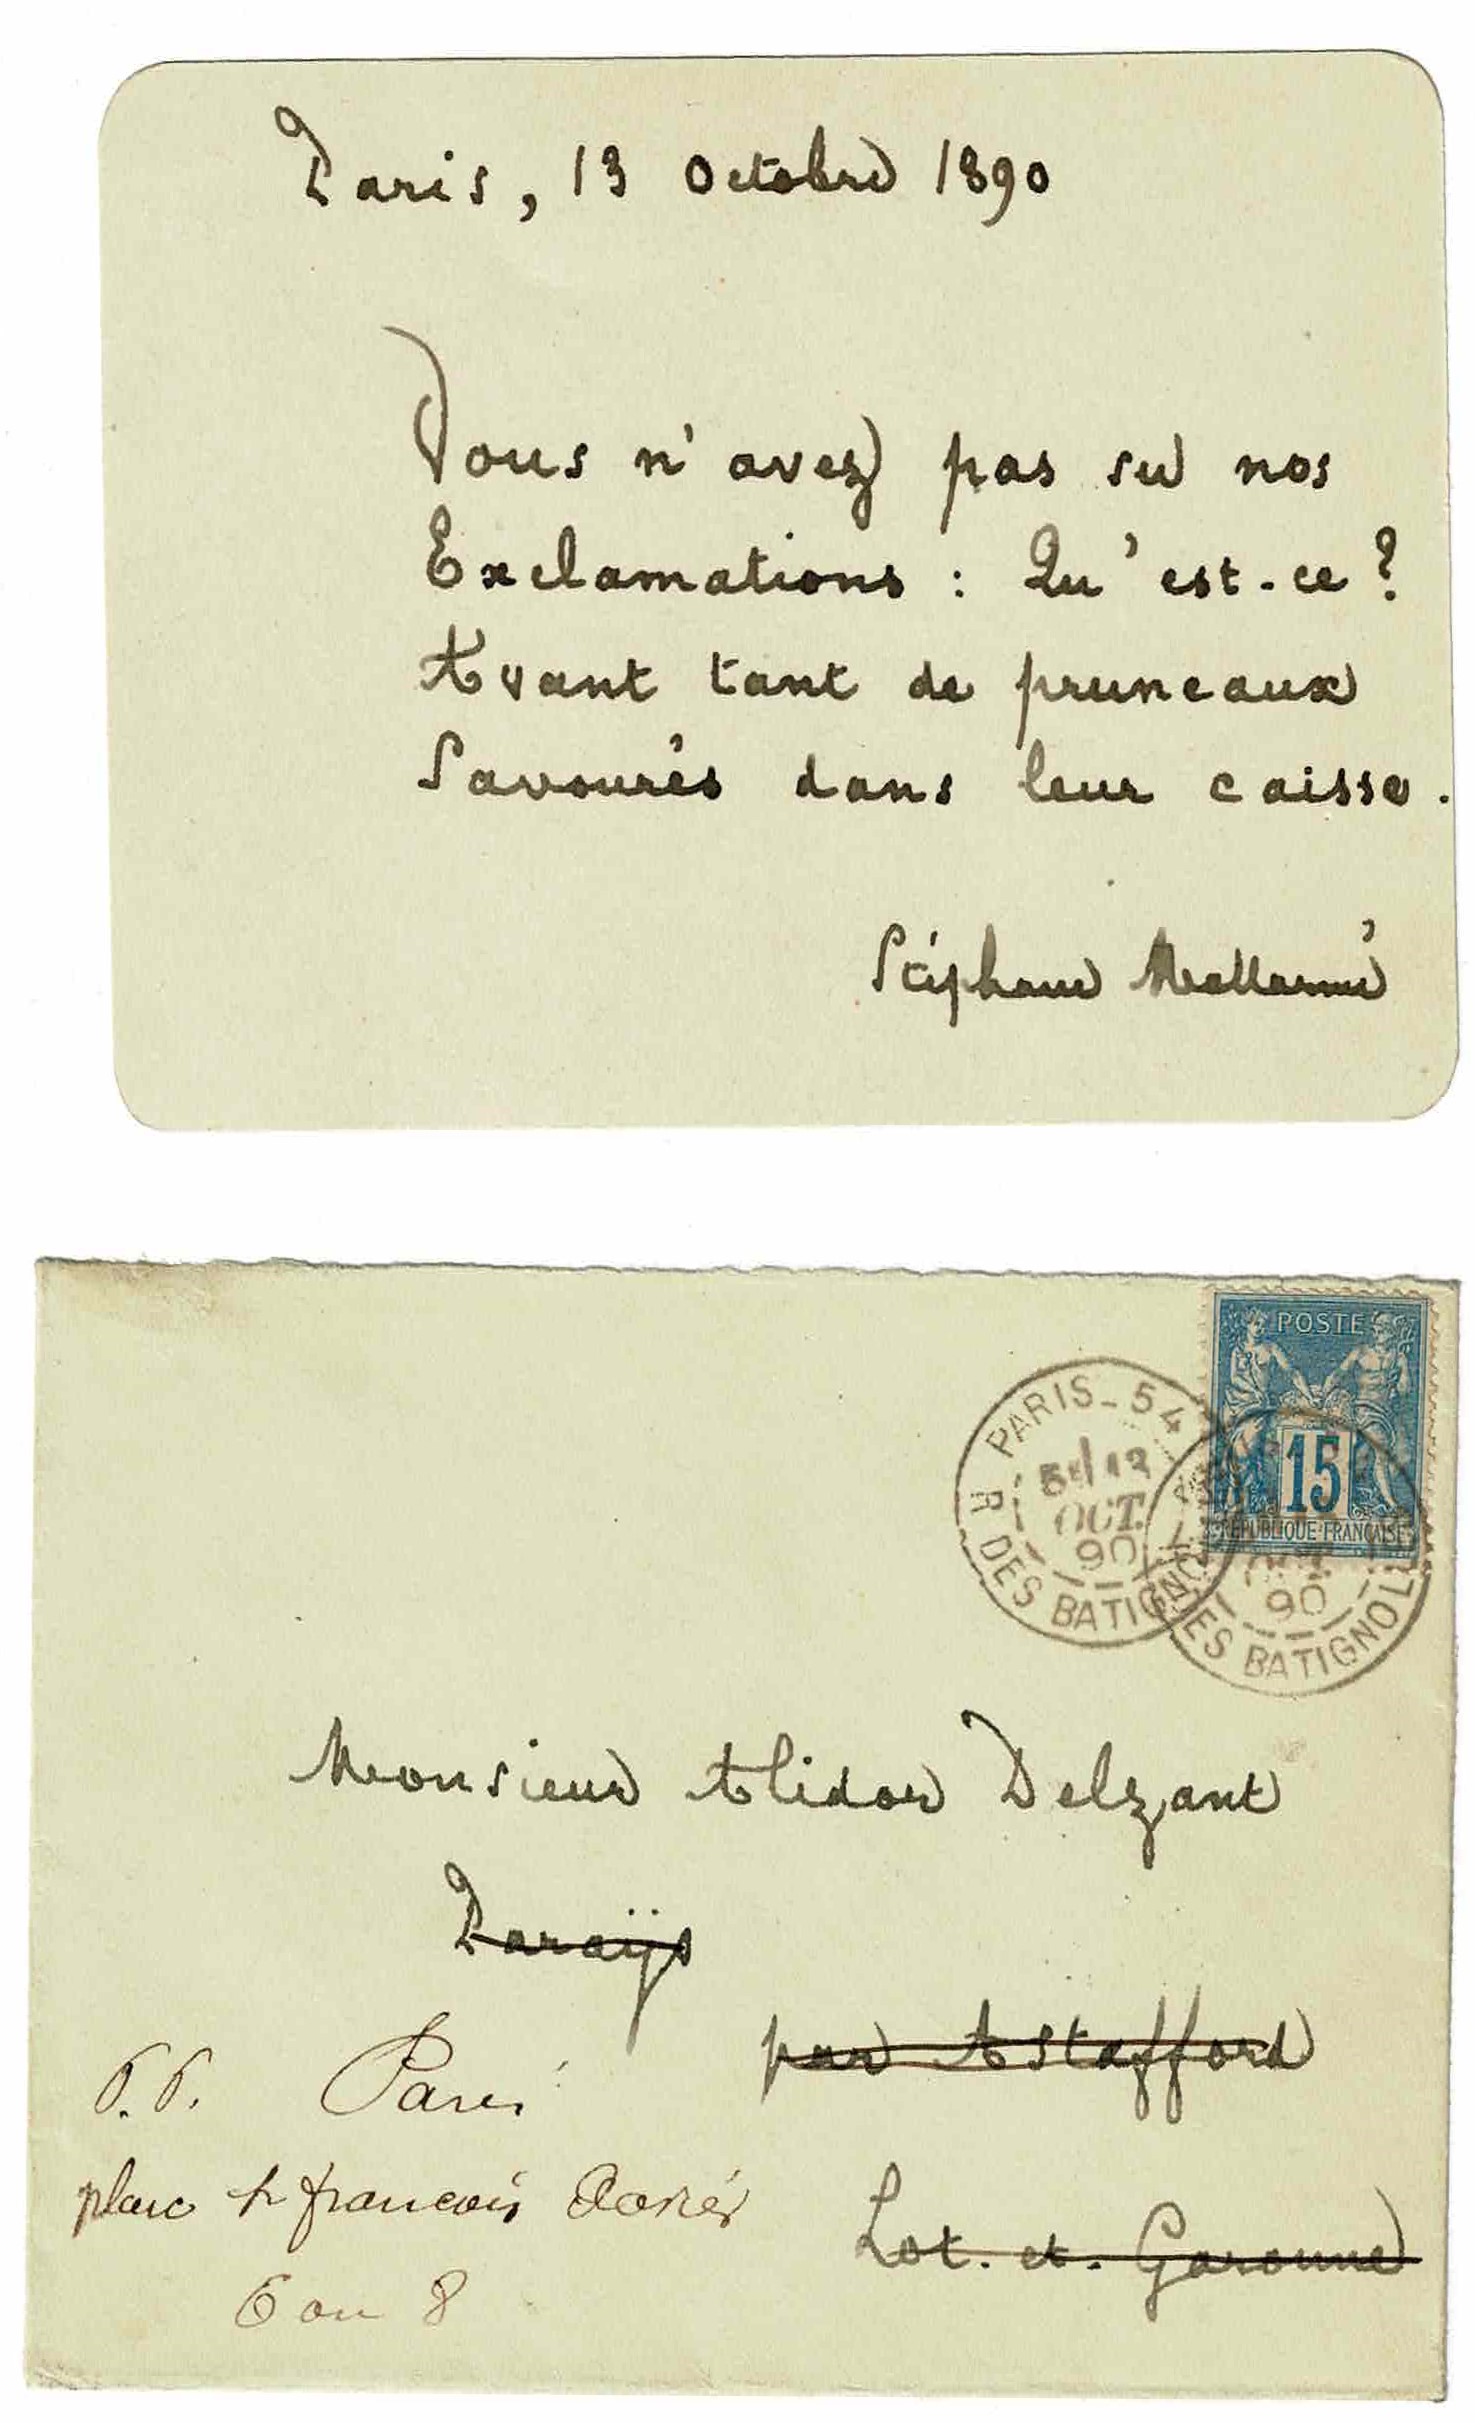 Paris, 13 Octobre 1890
Vous n'avez pas su nos
Exclamations : Qu'est-ce ?
Avant tant de pruneaux
Savourés dans leur caisse.
Stéphane Mallarmé
POSTE
15
REPUBLIQUE FRANCAISE
PARIS_54
OCT.
90
R DES BATIGNOL
90
DES BATIGNOL
Monsieur Alidor Delzant
Paraÿs
par Astafford
Paris
place St francois Xavier
6 ou 8
Lot. et. Garonne